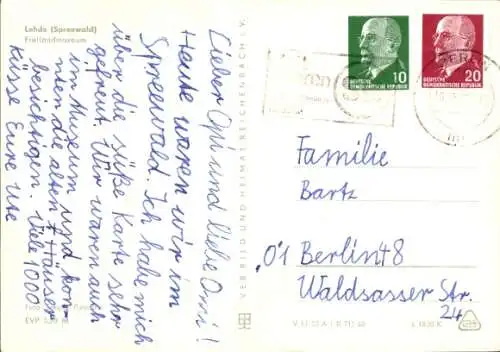 Lehde (Spreewald)
Freilandmuseum
Lieber Opi und liebe Omi!
Heute waren wir im
Spreewald. Ich habe mich
über die süße Karte sehr
gefreut. Wir waren auch
im Museum und konn-
ten die alten Häuser
besichtigen. Viele 1000
Küsse Eure Ute
EVP
VERBREITUNG HEIMAT REICHENBACH I. V.
10
DEUTSCHE
DEMOKRATISCHE REPUBLIK
20
DEUTSCHE
DEMOKRATISCHE REPUBLIK
Familie
Bartz
Berlin 48
Waldsasser Str.
24